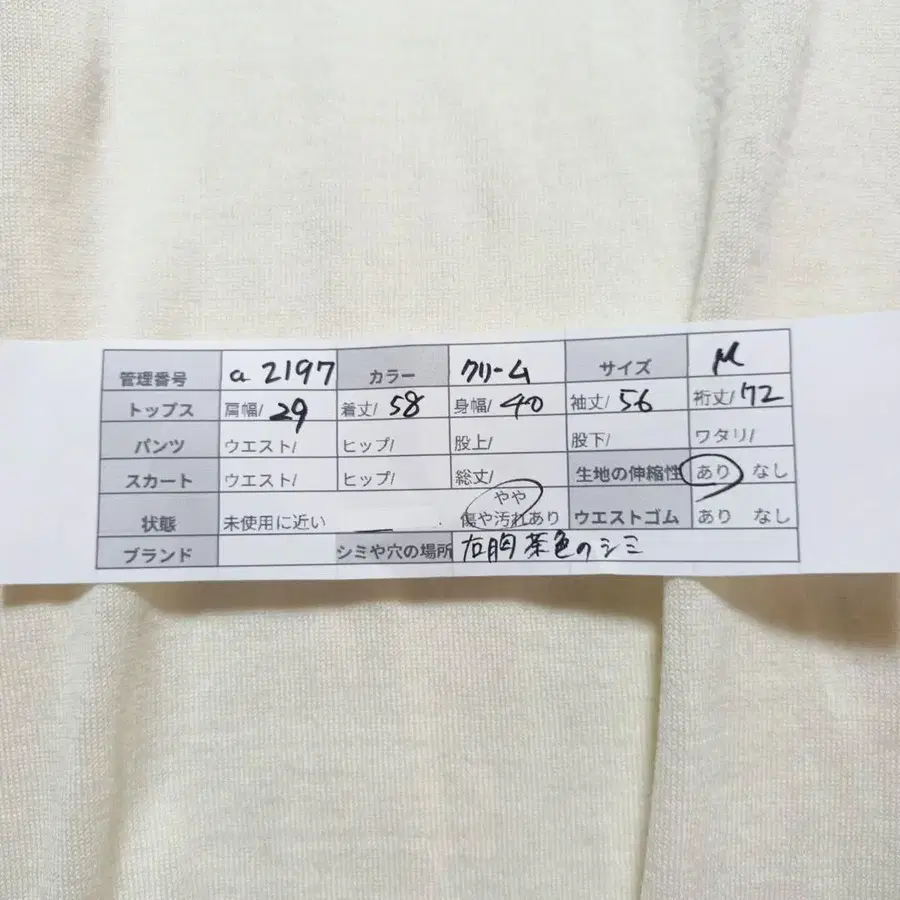 管理番号 a 2197 カラー クリーム サイズ M
トップス 肩幅/ 29 着丈/ 58 身幅/ 40 袖丈/ 56 裄丈/ 72
パンツ ウエスト/ ヒップ/ 股上/ 股下/ ワタリ/
スカート ウエスト/ ヒップ/ 総丈/ 生地の伸縮性 あり なし
状態 未使用に近い やや傷や汚れあり ウエストゴム あり なし
ブランド シミや穴の場所 右胸 茶色のシミ